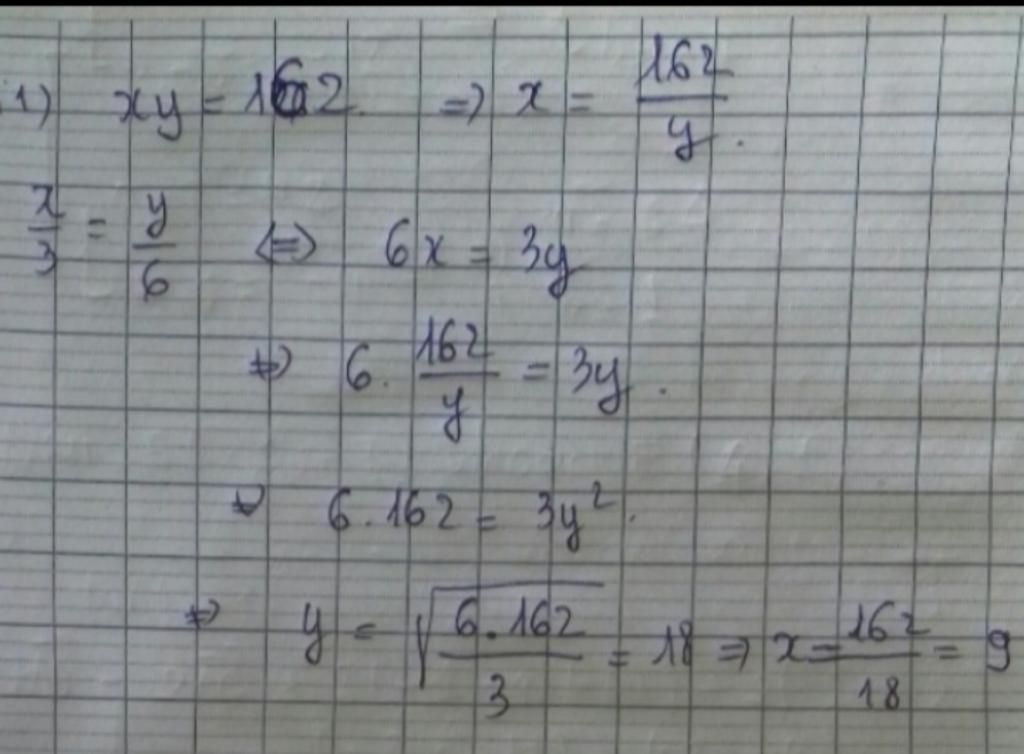 1) xy = 162. => x = 162/y.
x/3 = y/6 <=> 6x = 3y
=> 6. 162/y = 3y.
=> 6.162 = 3y².
=> y = √(6.162/3) = 18 => x = 162/18 = 9